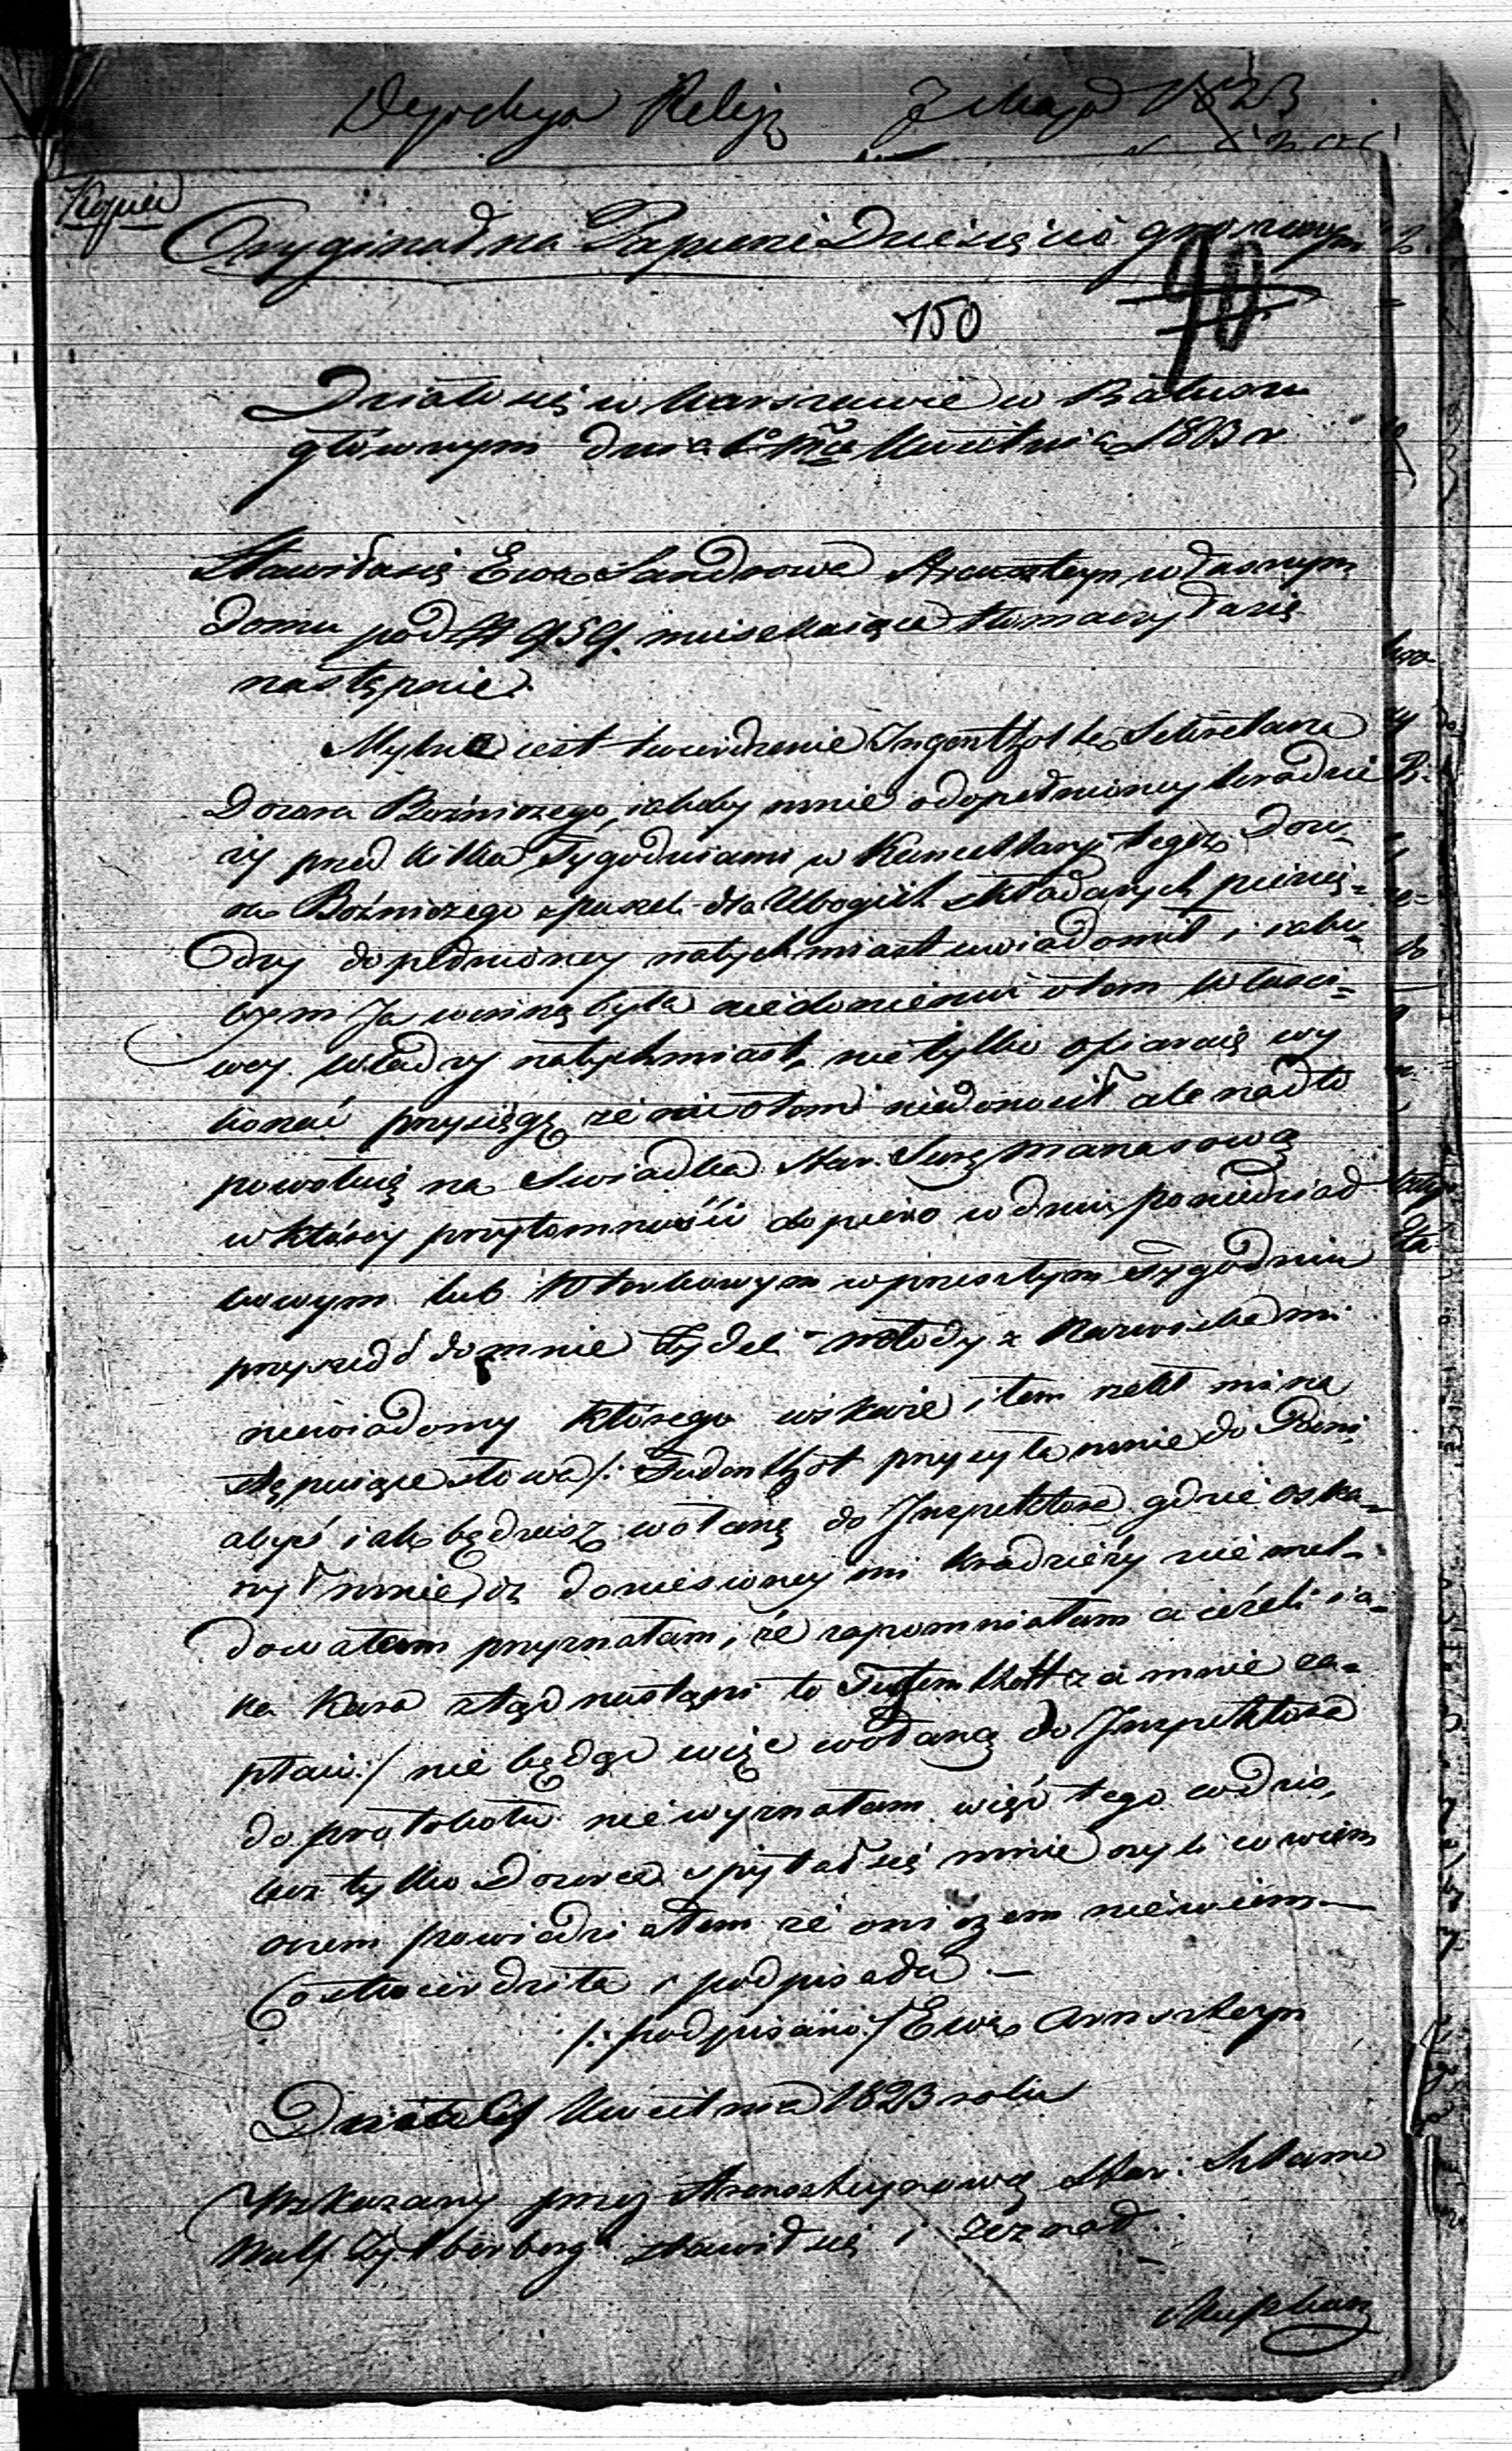 7 Maja 1823
Kopia
Oryginał na Papierze Dziesięcio groszowym
150
90
Działo się w Warszawie w Ratuszu
głównym dnia 1o mca Kwietnia 1823 r
Stawiła się Ewa Sandrowa Arnszteyn w własnym
domu pod N 959. mieszkaiąca tłomaczyła się
następnie.
Mylne iest twierdzenie Sekretarza
Dozoru Bożniczego, iakoby mnie o dopełnioney kradzie
ży przed kilku Tygodniami w Kancellaryi tegoż Dozo-
ru Bożniczego z puszek dla Ubogich składanych pienię-
dzy dopełnioney natychmiast uwiadomił i iako-
bym Ja winną była niedoniesienia o tem właści-
wey Władzy natychmiast, nie tylko ofiaruię wy
konać przysięgę że mi o tem niedonosił ale nadto
powołuię na Swiadka Star. Surę Manasową
w którey przytomności dopiero w dniu poniedział
kowym lub Wtorkowym w przeszłym Tygodniu
przyszedł do mnie Żydek młody z Nazwiska mi
niewiadomy którego wskażę i ten rzekł mi na
stępuiące słowa /: przysyła mnie do Pani
abyś iak będziesz wołaną do Inspektora gdzie oska-
rzył mnie, iż doniesioney mi kradzieży nie mel-
dowałam przyznałam, że zapomniałam a ieżeli ia-
ka kara ztąd nastąpi to za mnie za-
płaci :/ nie będąc więc wołaną do Inspektora
do protokołu nie wyznałam więc tego co dziś,
lecz tylko Dozorca spytał się mnie czyli co wiem
o czem powiedziałam że o niczem niewiem —
Co stwierdziła i podpisała. —
/: podpisano :/ Ewa Arnszteyn
Działo się Kwietnia 1823 roku
Wskazany przez Arnszteynową Star: Szlama
Wulf Zylberberg stawił się i zeznał.